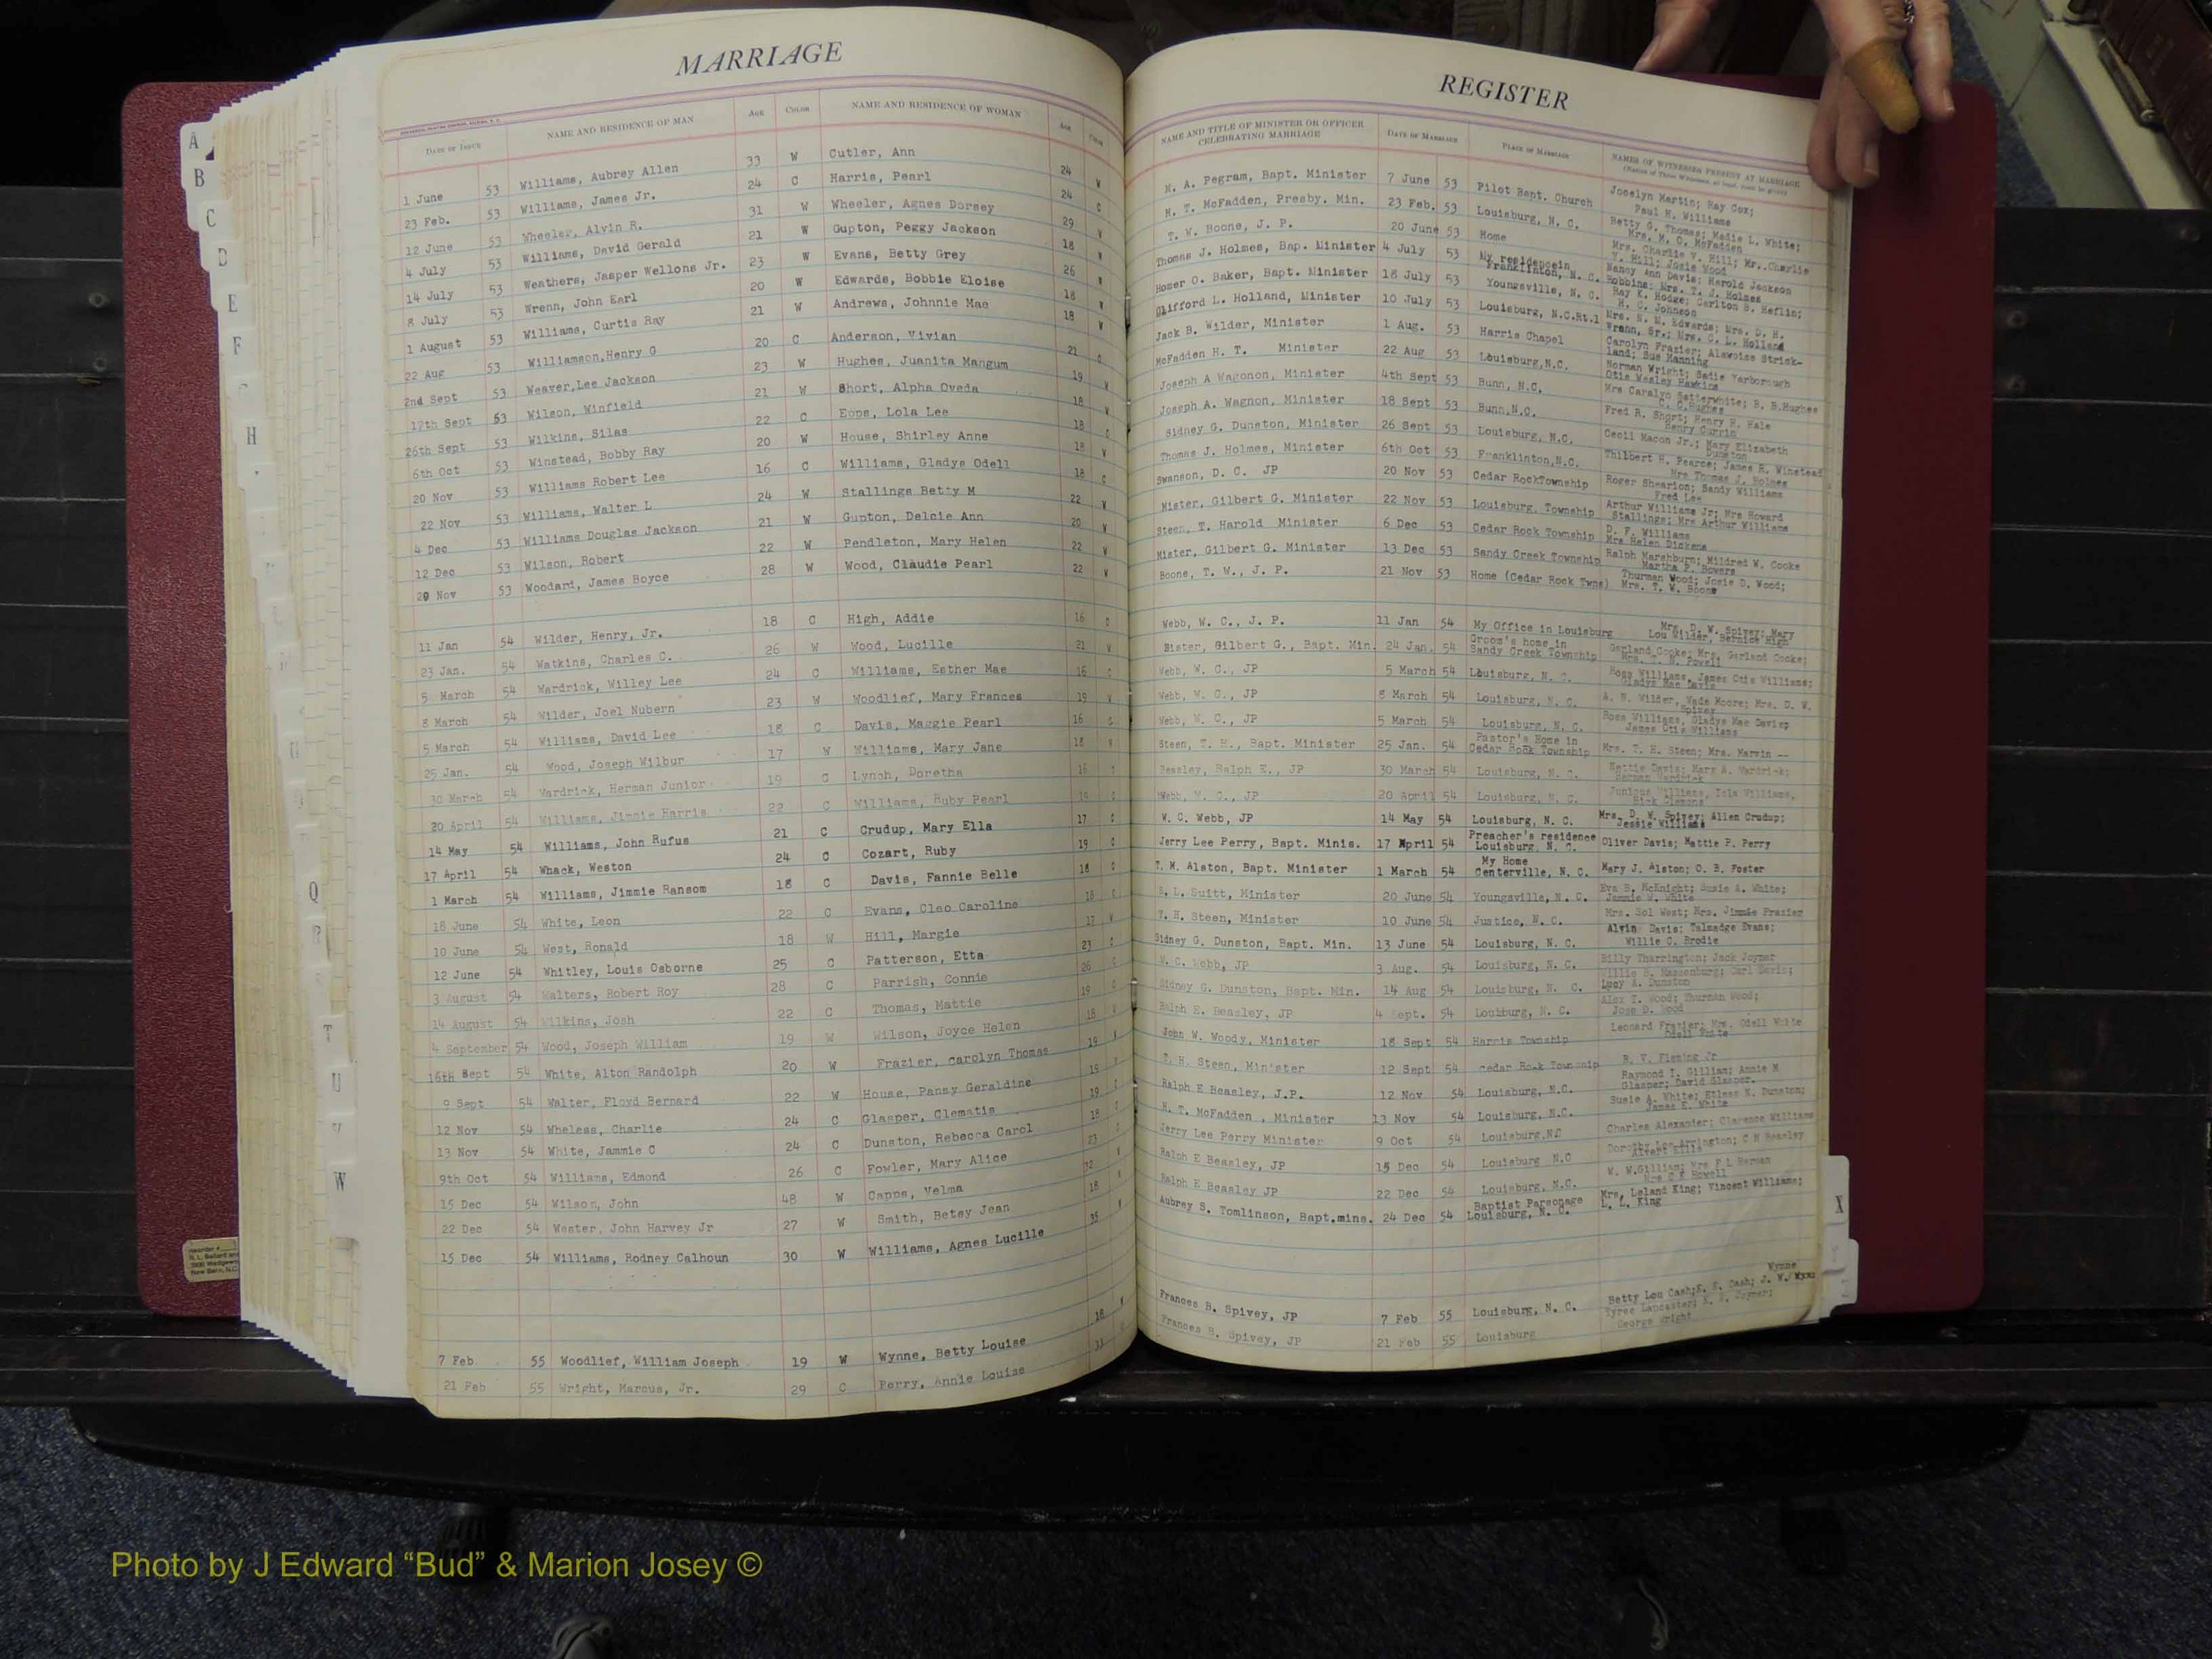 MARRIAGE
DATE OF ISSUE NAME AND RESIDENCE OF MAN AGE COLOR NAME AND RESIDENCE OF WOMAN AGE COLOR
1 June 53 Williams, Aubrey Allen 33 W Cutler, Ann 24 W
23 Feb. 53 Williams, James Jr. 24 C Harris, Pearl 24 C
12 June 53 Wheeler, Alvin R. 31 W Wheeler, Agnes Dorsey 29 W
4 July 53 Williams, David Gerald 21 W Gupton, Peggy Jackson 18 W
14 July 53 Weathers, Jasper Wellons Jr. 23 W Evans, Betty Grey 26 W
8 July 53 Wrenn, John Earl 20 W Edwards, Bobbie Eloise 18 W
1 August 53 Williams, Curtis Ray 21 W Andrews, Johnnie Mae 18 W
22 Aug 53 Williamson,Henry G 20 C Anderson, Vivian 21 C
2nd Sept 53 Weaver,Lee Jackson 23 W Hughes, Juanita Mangum 19 W
17th Sept 53 Wilson, Winfield 21 W Short, Alpha Oveda 18 W
26th Sept 53 Wilkins, Silas 22 C Epps, Lola Lee 18 C
6th Oct 53 Winstead, Bobby Ray 20 W House, Shirley Anne 18 W
20 Nov 53 Williams Robert Lee 16 C Williams, Gladys Odell 18 C
22 Nov 53 Williams, Walter L 24 W Stallings Betty M 22 W
4 Dec 53 Williams Douglas Jackson 21 W Gupton, Delcie Ann 20 W
12 Dec 53 Wilson, Robert 22 W Pendleton, Mary Helen 22 W
20 Nov 53 Woodard, James Boyce 28 W Wood, Claudie Pearl 22 W
11 Jan 54 Wilder, Henry, Jr. 18 C High, Addie 16 C
23 Jan. 54 Watkins, Charles C. 26 W Wood, Lucille 21 W
5 March 54 Wardrick, Willey Lee 24 C Williams, Esther Mae 16 C
8 March 54 Wilder, Joel Nubern 23 W Woodlief, Mary Frances 19 W
5 March 54 Williams, David Lee 18 C Davis, Maggie Pearl 16 C
25 Jan. 54 Wood, Joseph Wilbur 17 W Williams, Mary Jane 18 W
30 March 54 Wardrick, Herman Junior 19 C Lynch, Doretha 16 C
20 April 54 Williams, Jimmie Harris 22 C Williams, Ruby Pearl 19 C
14 May 54 Williams, John Rufus 21 C Crudup, Mary Ella 17 C
17 April 54 Whack, Weston 24 C Cozart, Ruby 19 C
1 March 54 Williams, Jimmie Ransom 18 C Davis, Fannie Belle 18 C
18 June 54 White, Leon 22 C Evans, Cleo Caroline 18 C
10 June 54 West, Ronald 18 W Hill, Margie 17 W
12 June 54 Whitley, Louis Osborne 25 C Patterson, Etta 23 C
3 August 54 Walters, Robert Roy 28 C Parrish, Connie 26 C
14 August 54 Wilkins, Josh 22 C Thomas, Mattie 19 C
4 September 54 Wood, Joseph William 19 W Wilson, Joyce Helen 18 W
16th Sept 54 White, Alton Randolph 20 W Frazier, Carolyn Thomas 19 W
9 Sept 54 Walter, Floyd Bernard 22 W House, Pansy Geraldine
12 Nov 54 Wheless, Charlie 24 C Glasper, Clematis 19
13 Nov 54 White, Jammie C 24 C Dunston, Rebecca Carol 18
9th Oct 54 Williams, Edmond 26 C Fowler, Mary Alice 23
15 Dec 54 Wilson, John 48 W Capps, Velma
22 Dec 54 Wester, John Harvey Jr 27 W Smith, Betsy Jean 18
15 Dec 54 Williams, Rodney Calhoun 30 W Williams, Agnes Lucille 35 W
7 Feb 55 Woodlief, William Joseph 19 W Wynne, Betty Louise 18 W
21 Feb 55 Wright, Marcus, Jr. 29 C Perry, Annie Louise 33
REGISTER
NAME AND TITLE OF MINISTER OR OFFICER CELEBRATING MARRIAGE DATE OF MARRIAGE PLACE OF MARRIAGE NAMES OF WITNESSES PRESENT AT MARRIAGE
M. A. Pegram, Bapt. Minister 7 June 53 Pilot Bapt. Church Jocelyn Martin; Ray Cox; Paul H. Williams
H. T. McFadden, Presby. Min. 23 Feb. 53 Louisburg, N. C. Betty G. Thomas; Madie L. White; Mrs. M. O. McFadden
T. W. Boone, J. P. 20 June 53 Home Mrs. Charlie V. Hill; Mr. Charlie V. Hill; Josie Wood
Thomas J. Holmes, Bap. Minister 4 July 53 My residencein Franklinton, N. C. Nancy Ann Davis; Harold Jackson Robbins; Mrs. T. J. Holmes
Homer O. Baker, Bapt. Minister 18 July 53 Youngsville, N. C. Ray K. Hodge; Carlton B. Heflin; H. C. Johnson
Clifford L. Holland, Minister 10 July 53 Louisburg, N.C.Rt.1 Mrs. N. M. Edwards; Mrs. D. H. Wrenn, Sr.; Mrs. C. L. Holland
Jack B. Wilder, Minister 1 Aug. 53 Harris Chapel Carolyn Frazier; Alawoise Strickland; Sue Manning
McFadden H. T. Minister 22 Aug 53 Louisburg,N.C. Norman Wright; Sadie Yarborough Otis Wesley Hawkins
Joseph A Wagonon, Minister 4th Sept 53 Bunn, N.C. Mrs Caralyn Satterwhite; B. B.Hughes C. C.Hughes
Joseph A. Wagnon, Minister 18 Sept 53 Bunn,N.C. Fred R. Short; Henry H. Hale Henry Currin
Sidney G. Dunston, Minister 26 Sept 53 Louisburg, N.C. Cecil Macon Jr.; Mary Elizabeth Dunston
Thomas J. Holmes, Minister 6th Oct 53 Franklinton,N.C. Thilbert H. Pearce; James R. Winstead Mrs Thomas J. Holmes
Swanson, D. C. JP 20 Nov 53 Cedar RockTownship Roger Shearion; Sandy Williams Fred Lee
Mister, Gilbert G. Minister 22 Nov 53 Louisburg, Township Arthur Williams Jr; Mrs Howard Stallings; Mrs Arthur Williams
Steen, T. Harold Minister 6 Dec 53 Cedar Rock Township D. F. Williams Mrs Helen Dickens
Mister, Gilbert G. Minister 13 Dec 53 Sandy Creek Township Ralph Marshburn; Mildred W. Cooke Martha P. Bowers
Boone, T. W., J. P. 21 Nov 53 Home (Cedar Rock Twns) Thurman Wood; Josie D. Wood; Mrs. T. W. Boone
Webb, W. C., J. P. 11 Jan 54 My Office in Louisburg Mrs. D. W. Spivey; Mary Lou Wilder, Bernice High
Bister, Gilbert G., Bapt. Min. 24 Jan. 54 Groom's home in Sandy Creek Township Garland Cooke; Mrs. Garland Cooke; Mrs. T. H. Powell
Webb, W. C., JP 5 March 54 Louisburg, N. C. Ross Williams, James Otis Williams; Gladys Mae Davis
Webb, W. C., JP 8 March 54 Louisburg, N. C. A. N. Wilder, Wade Moore; Mrs. D. W. Spivey
Webb, W. C., JP 5 March 54 Louisburg, N. C. Ross Williams, Gladys Mae Davis; James Otis Williams
Steen, T. H., Bapt. Minister 25 Jan. 54 Pastor's Home in Cedar Rock Township Mrs. T. H. Steen; Mrs. Marvin --
Beasley, Ralph E., JP 30 March 54 Louisburg, N. C. Hattie Davis; Mary A. Wardrick; Herman Wardrick
Webb, W. C., JP 20 April 54 Louisburg, N. C. Junious Williams, Iola Williams, Dick Clemons
W. C. Webb, JP 14 May 54 Louisburg, N. C. Mrs. D. W. Spivey; Allen Crudup; Jessie Williams
Jerry Lee Perry, Bapt. Minis. 17 April 54 Preacher's residence Louisburg, N. C. Oliver Davis; Mattie P. Perry
T. M. Alston, Bapt. Minister 1 March 54 My Home Centerville, N. C. Mary J. Alston; O. B. Foster
S. L. Suitt, Minister 20 June 54 Youngsville, N. C. Eva B. McKnight; Susie A. White; Jammie W. White
T. H. Steen, Minister 10 June 54 Justice, N. C. Mrs. Sol West; Mrs. Jimmie Frazier
Sidney G. Dunston, Bapt. Min. 13 June 54 Louisburg, N. C. Alvin Davis; Talmadge Evans; Willie C. Brodie
W. C. Webb, JP 3 Aug. 54 Louisburg, N. C. Billy Tharrington; Jack Joyner
Sidney G. Dunston, Bapt. Min. 14 Aug 54 Louisburg, N. C. Willie B. Massenburg; Carl Davis; Lucy A. Dunston
Ralph E. Beasley, JP 4 Sept. 54 Louisburg, N. C. Alex T. Wood; Thurman Wood; Jose D. Wood
John W. Woody, Minister 18 Sept 54 Harris Township Leonard Frazier; Mrs. Odell White Odell White
T. H. Steen, Minister 12 Sept 54 Cedar Rock Township R. V. Fleming Jr
Ralph E Beasley, J.P. 12 Nov 54 Louisburg, N.C. Raymond T. Gilliam; Annie M Glasper; David Glasper.
H. T. McFadden , Minister 13 Nov 54 Louisburg, N.C. Susie A. White; Ethess N. Dunston; James E. White
Jerry Lee Perry Minister 9 Oct 54 Louisburg,NC Charles Alexander; Clarence Williams
Ralph E Beasley, JP 15 Dec 54 Louisburg N.C Dorothy Lee Arrington; C N Beasley Alvert Ellis
Ralph E Beasley JP 22 Dec 54 Louisburg, N.C. W. W.Gilliam; Mrs F L Herman Mrs C F Howell
Aubrey S. Tomlinson, Bapt.mins. 24 Dec 54 Baptist Parsonage Louisburg, N. C. Mrs. Leland King; Vincent Williams; L. L. King
Frances B. Spivey, JP 7 Feb 55 Louisburg, N. C. Betty Lou Cash; Cash; J. W. Wynne
Frances B. Spivey, JP 21 Feb 55 Louisburg Tyree Lancaster; Joyner; George Wright
A
B
C
D
E
F
H
Q
T
U
V
W
X
Photo by J Edward “Bud” & Marion Josey ©